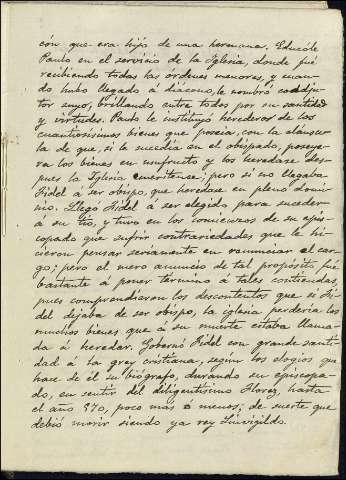 ción que era hijo de una hermana. Educóle
Paulo en el servicio de la Iglesia, donde fué
recibiendo todas las órdenes menores, y cuan-
do hubo llegado á diácono, le nombró coadju-
tor suyo, brillando entre todos por su santidad
y virtudes. Paulo le instituyó heredero de los
cuantiosísimos bienes que poseia, con la cláusu-
la de que, si le sucedia en el obispado, poseye-
ra los bienes en usufructo y los heredase des-
pues la Iglesia emeritense; pero si no llegaba
Fidel á ser obispo, que heredase en pleno domi-
nio. Llegó Fidel á ser elegido para suceder
á su tio, y tuvo en los comienzos de su epis-
copado que sufrir contrariedades que le hi-
cieron pensar seriamente en renunciar el car-
go; pero el mero anuncio de tal propósito fué
bastante á poner término á tales contiendas,
pues comprendieron los descontentos que si Fi-
del dejaba de ser obispo, la iglesia perderia los
muchos bienes que á su muerte estaba llama-
da á heredar. Gobernó Fidel con grande santi-
dad á la grey cristiana, segun los elogios que
hace de él su biógrafo, durando su episcopa-
do, en sentir del diligentísimo Florez, hasta
el año 570, poco mas ó menos; de suerte que
debió morir siendo ya rey Liuvigildo.